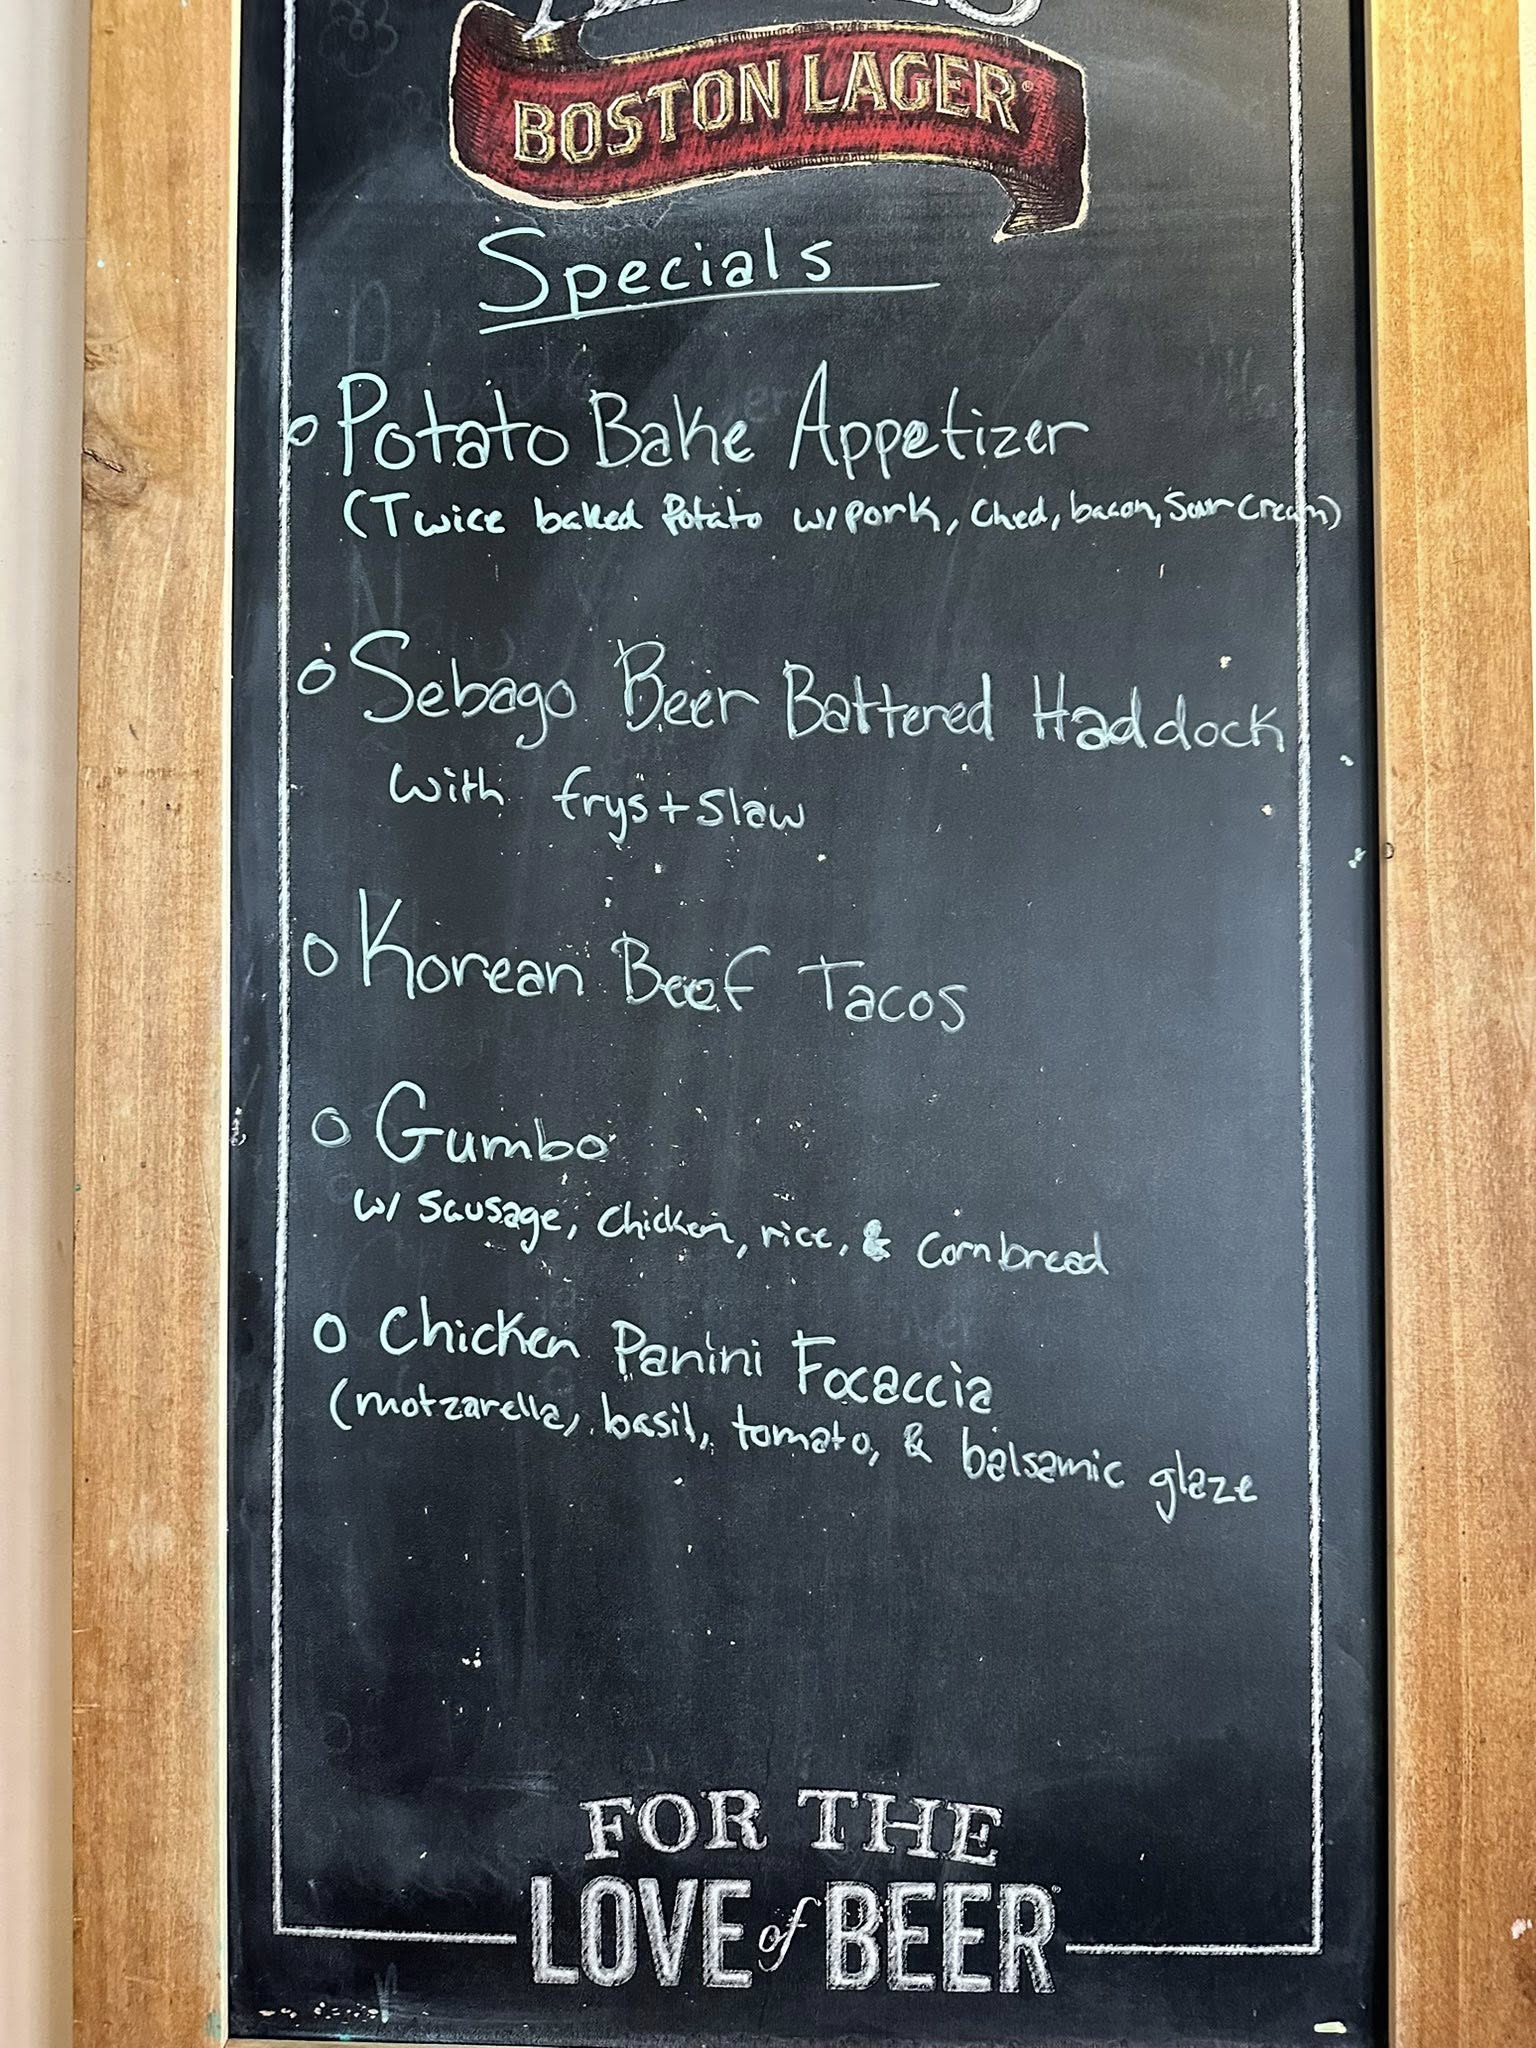 BOSTON LAGER
Specials
o Potato Bake Appetizer
(Twice baked Potato w/ pork, Ched, bacon, Sour Cream)
o Sebago Beer Battered Haddock
with frys + slaw
o Korean Beef Tacos
o Gumbo
w/ sausage, chicken, rice, & cornbread
o Chicken Panini Focaccia
(motzarella, basil, tomato, & balsamic glaze
FOR THE
LOVE of BEER